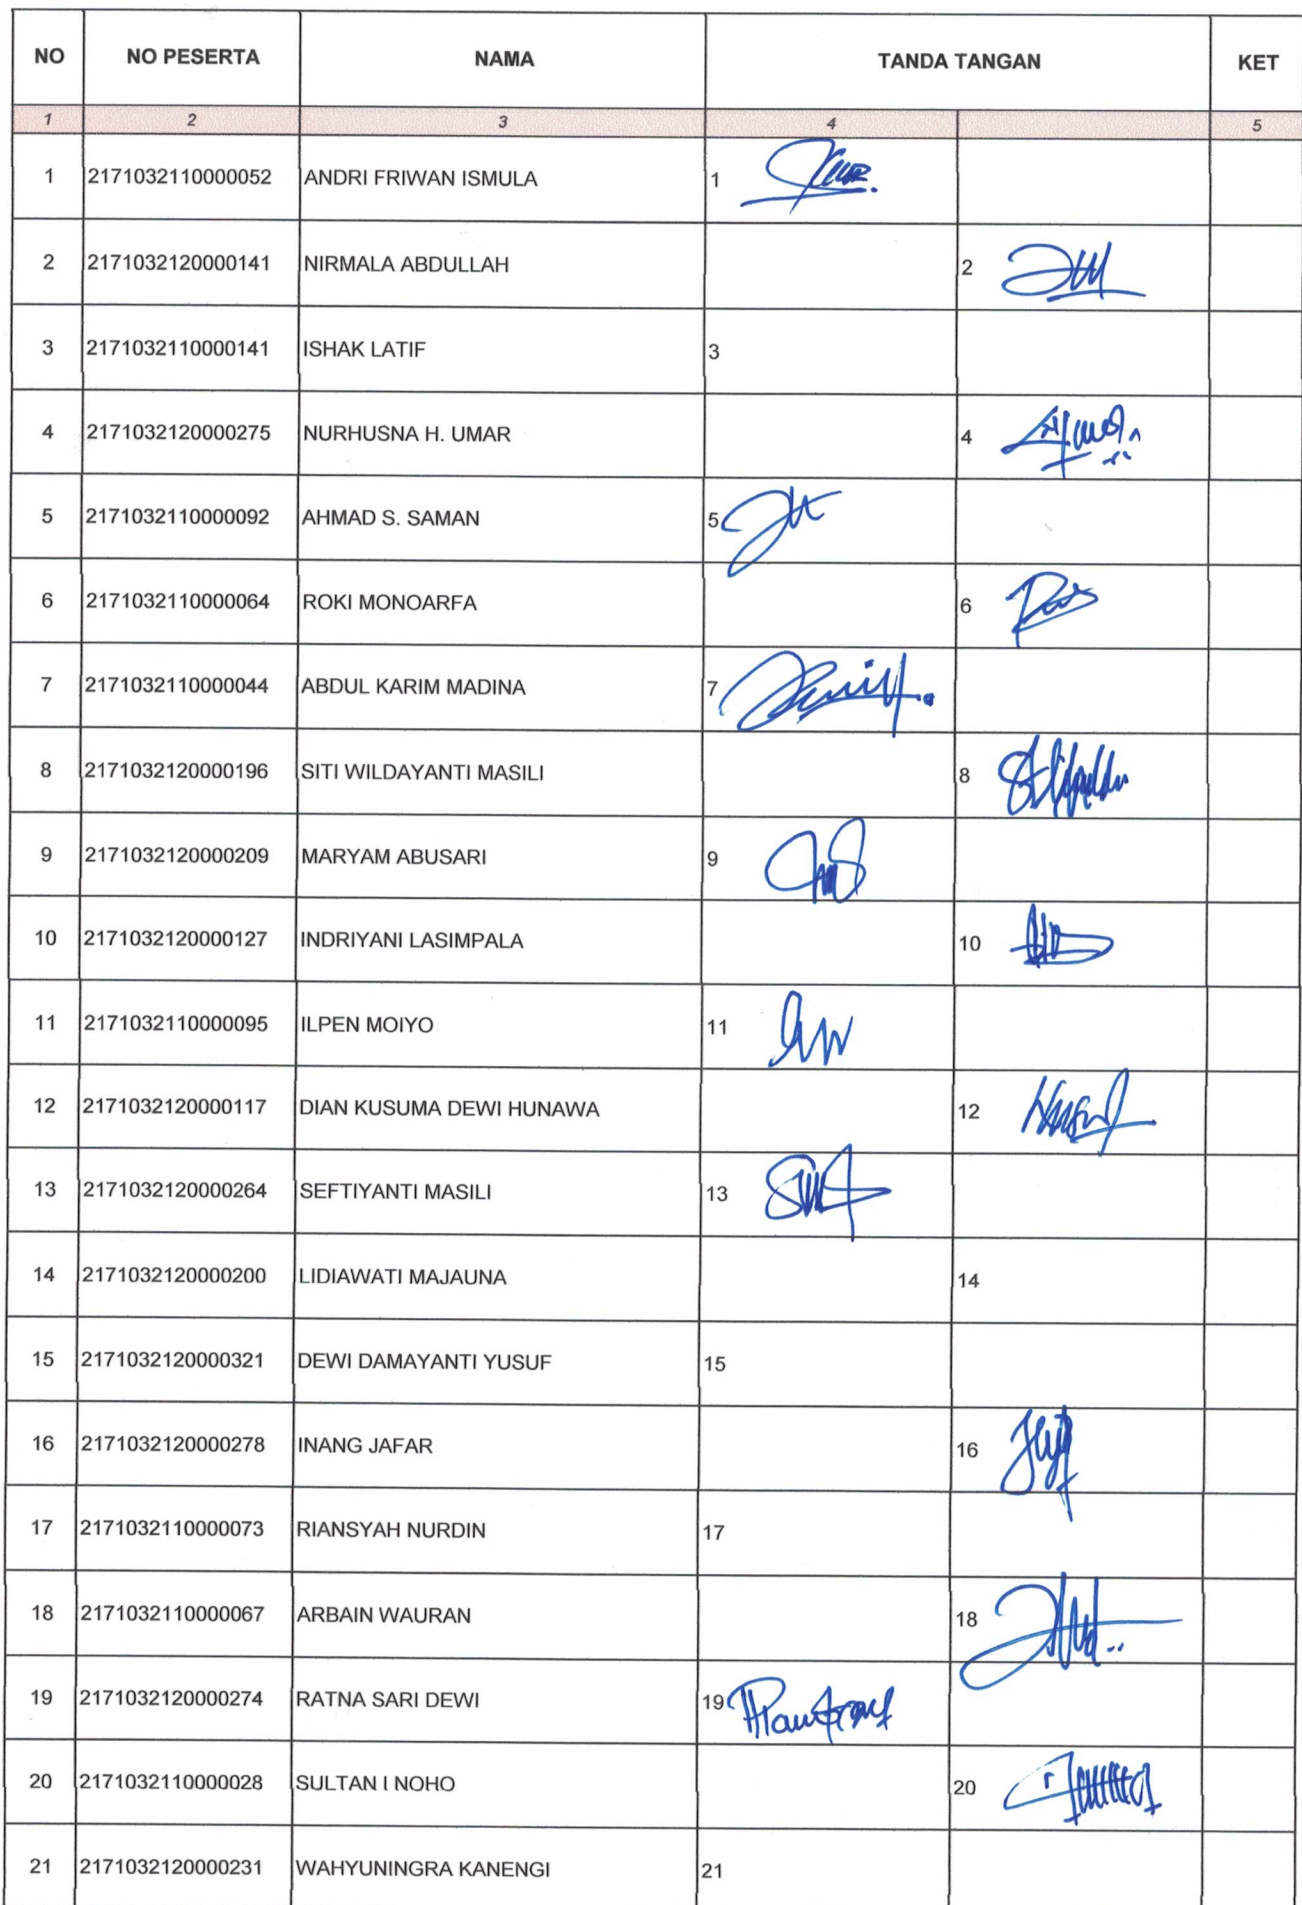 NO NO PESERTA NAMA TANDA TANGAN KET
1 2 3 4 5
1 2171032110000052 ANDRI FRIWAN ISMULA 1
2 2171032120000141 NIRMALA ABDULLAH 2
3 2171032110000141 ISHAK LATIF 3
4 2171032120000275 NURHUSNA H. UMAR 4
5 2171032110000092 AHMAD S. SAMAN 5
6 2171032110000064 ROKI MONOARFA 6
7 2171032110000044 ABDUL KARIM MADINA 7
8 2171032120000196 SITI WILDAYANTI MASILI 8
9 2171032120000209 MARYAM ABUSARI 9
10 2171032120000127 INDRIYANI LASIMPALA 10
11 2171032110000095 ILPEN MOIYO 11
12 2171032120000117 DIAN KUSUMA DEWI HUNAWA 12
13 2171032120000264 SEFTIYANTI MASILI 13
14 2171032120000200 LIDIAWATI MAJAUNA 14
15 2171032120000321 DEWI DAMAYANTI YUSUF 15
16 2171032120000278 INANG JAFAR 16
17 2171032110000073 RIANSYAH NURDIN 17
18 2171032110000067 ARBAIN WAURAN 18
19 2171032120000274 RATNA SARI DEWI 19
20 2171032110000028 SULTAN I NOHO 20
21 2171032120000231 WAHYUNINGRA KANENGI 21